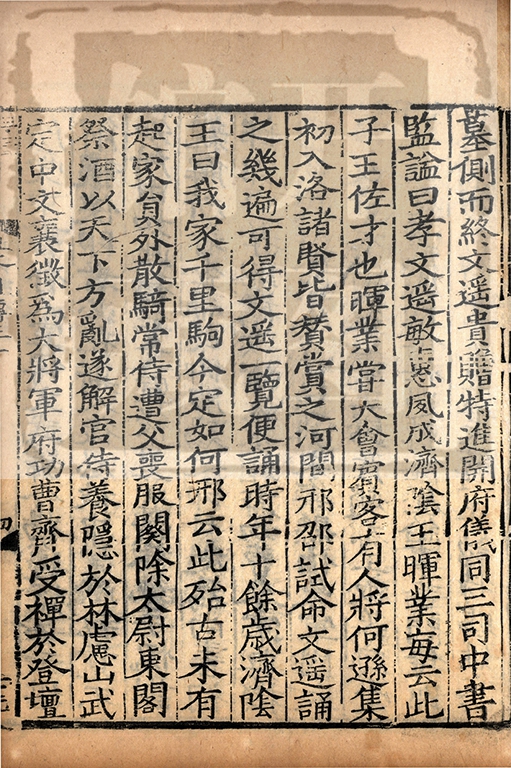 墓側而終文遥貴贈特進開府儀同三司中書
監諡曰孝文遥敏惠夙成濟陰王暉業每云此
子王佐才也暉業嘗大會賓客有人將何遜集
初入洛諸賢皆贊賞之河間邢邵試命文遥誦
之幾遍可得文遥一覽便誦時年十餘歲濟陰
王曰我家千里駒今定如何邢云此殆古未有
起家員外散騎常侍遭父喪服闋除太尉東閤
祭酒以天下方亂遂解官侍養隱於林慮山武
定中文襄徵爲大將軍府功曹齊受禪於登壇